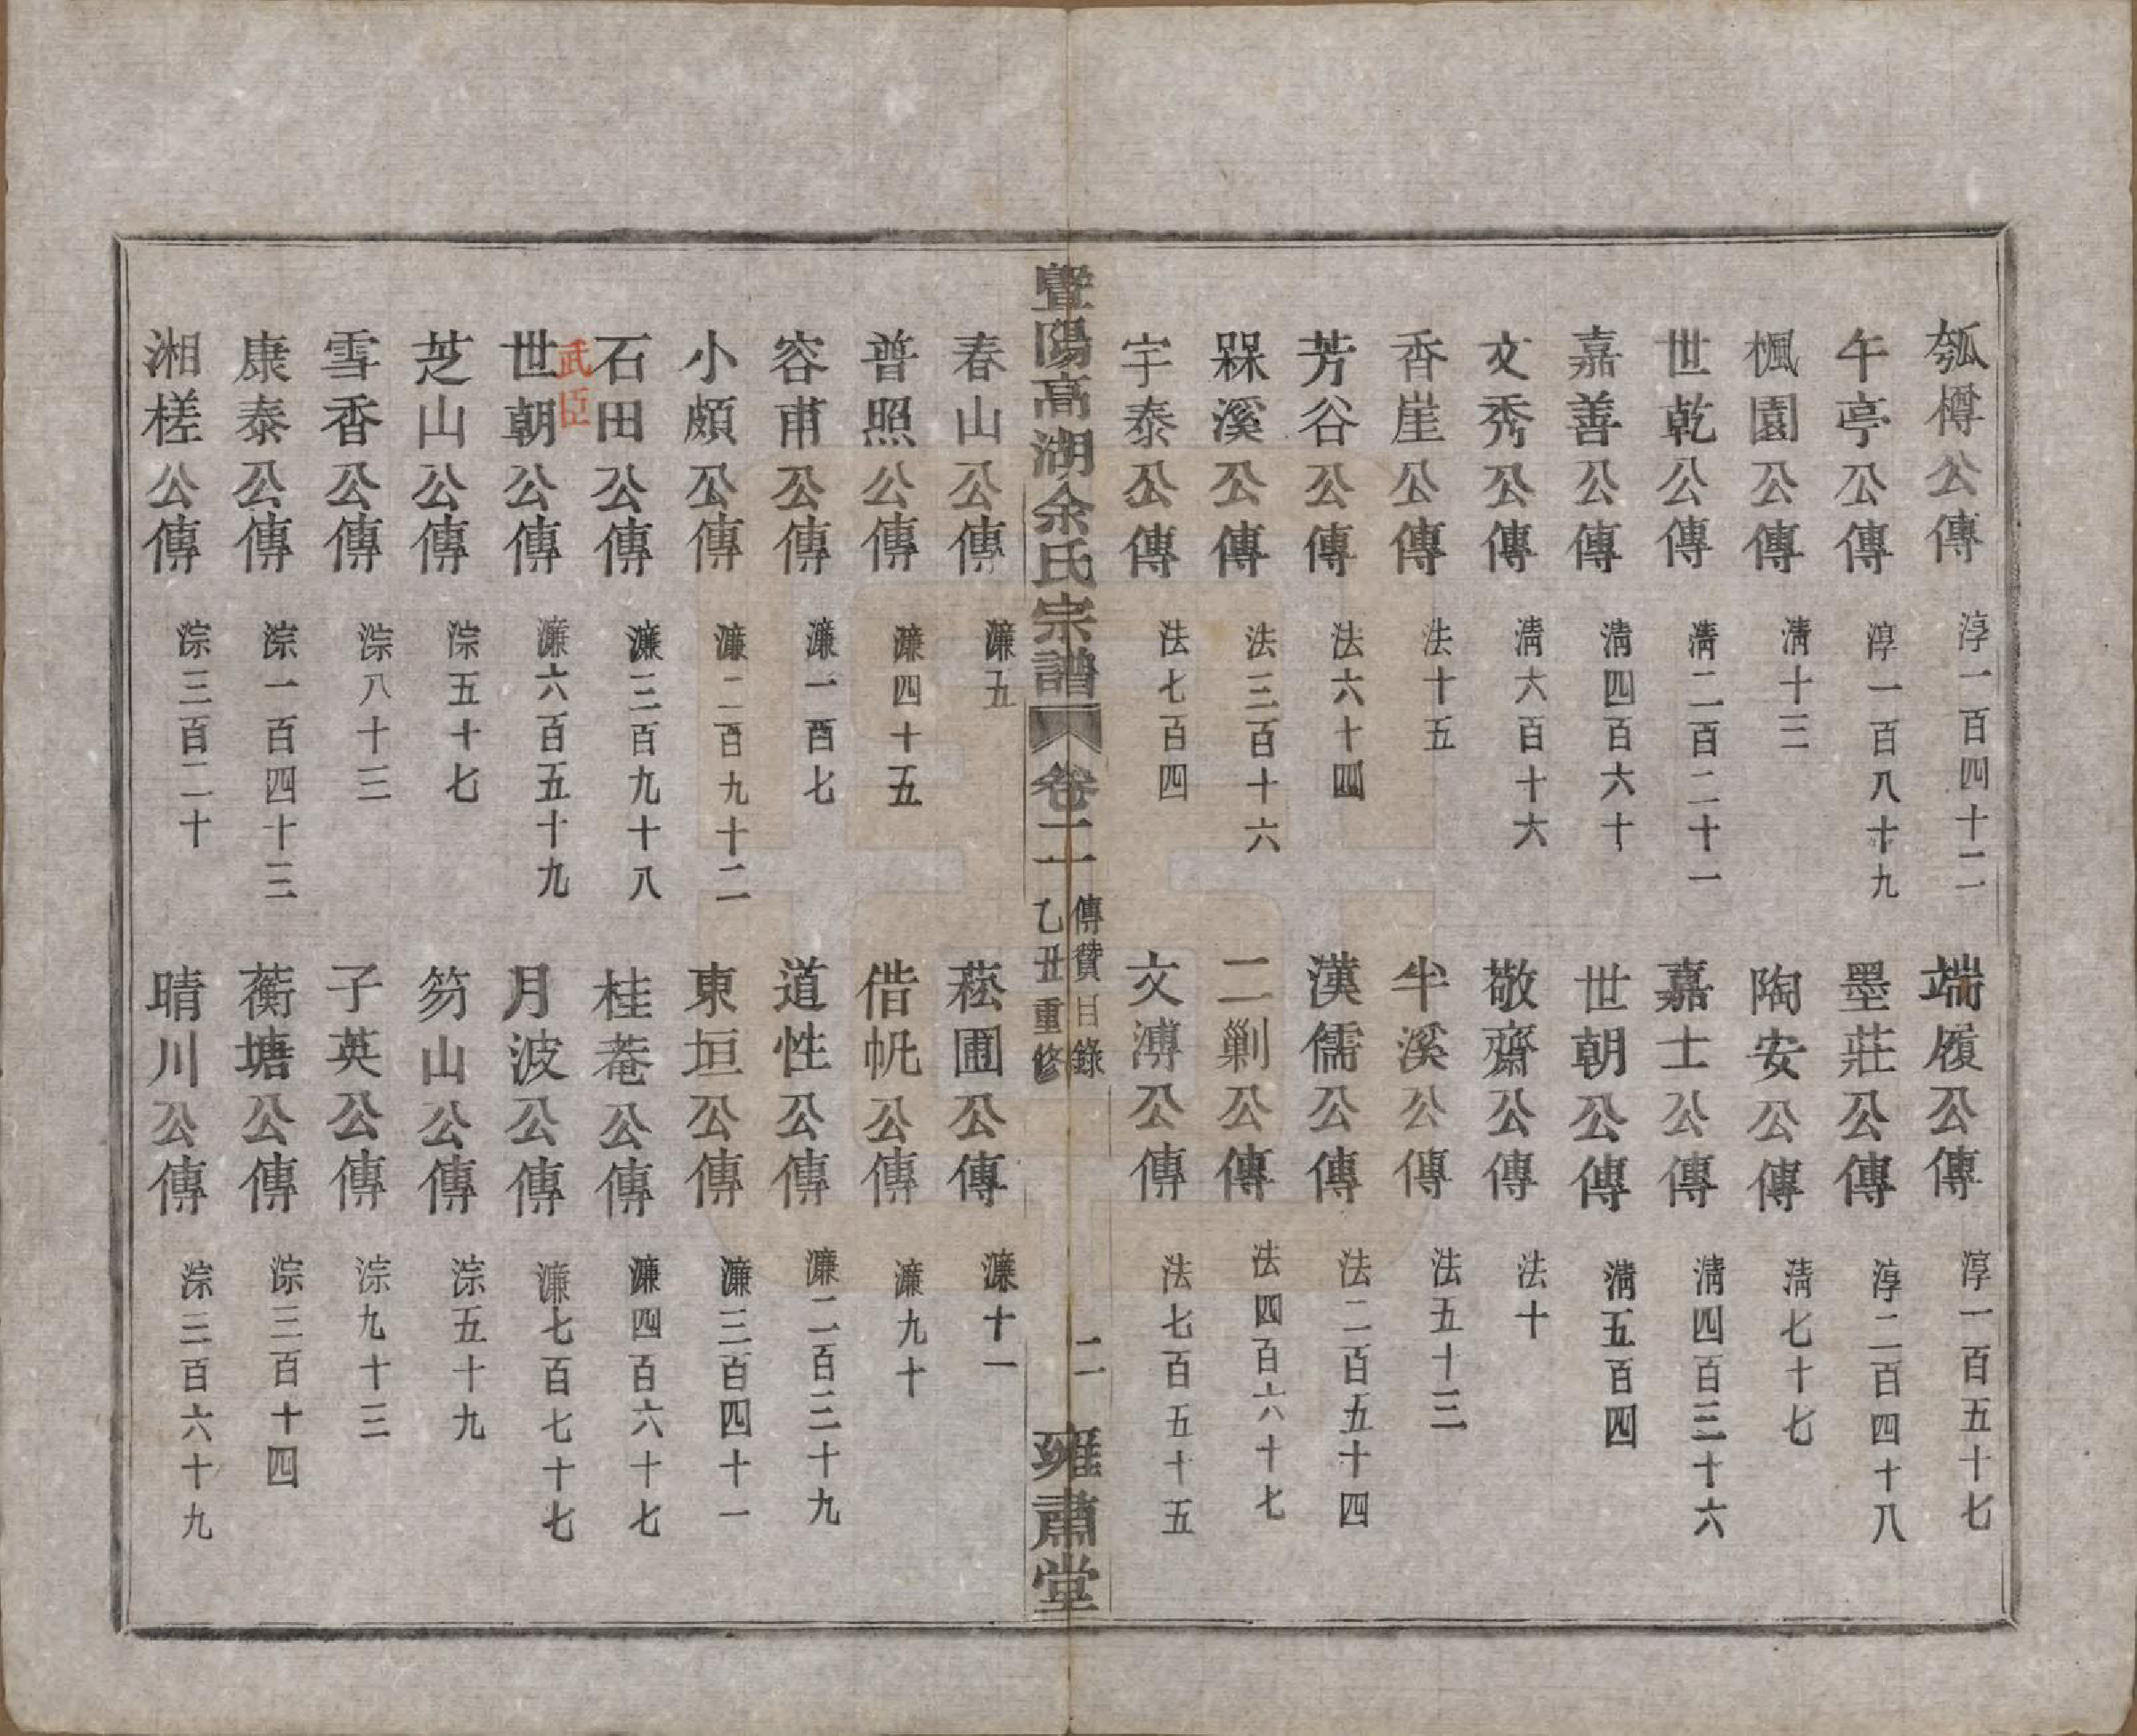 瓠樽公傳 淳一百四十二 端履公傳 淳一百五十七
午亭公傳 淳一百八十九 墨莊公傳 淳二百四十八
楓園公傳 清十三 陶安公傳 清七十七
世乾公傳 清二百二十一 嘉士公傳 清四百三十六
嘉善公傳 清四百六十 世朝公傳 清五百四
文秀公傳 清六百十六 敬齋公傳 法十
香崖公傳 法十五 半溪公傳 法五十三
芳谷公傳 法六十四 漢儒公傳 法二百五十四
槑溪公傳 法三百十六 二剿公傳 法四百六十七
宇泰公傳 法七百四 文溥公傳 法七百五十五
暨陽高湖余氏宗譜 卷二 傳贊目錄 乙丑重修 二 雍肅堂
春山公傳 濂五 菘圃公傳 濂十一
普照公傳 濂四十五 偕帆公傳 濂九十
容甫公傳 濂一百七 道性公傳 濂二百三十九
小頗公傳 濂二百九十二 東垣公傳 濂三百四十一
石田公傳 濂三百九十八 桂菴公傳 濂四百六十七
武臣
世朝公傳 濂六百五十九 月波公傳 濂七百七十七
芝山公傳 淙五十七 笏山公傳 淙五十九
雪香公傳 淙八十三 子英公傳 淙九十三
康泰公傳 淙一百四十三 蘅塘公傳 淙三百十四
湘槎公傳 淙三百二十 晴川公傳 淙三百六十九